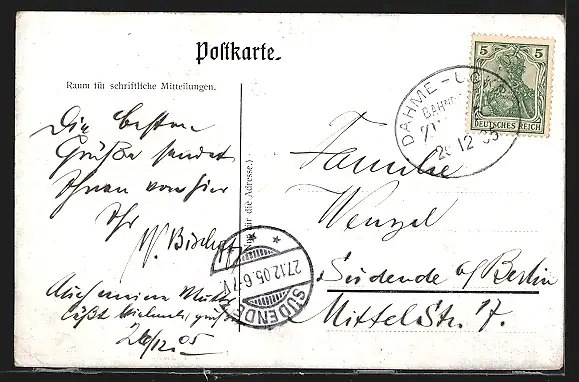 Postkarte.
Raum für schriftliche Mitteilungen.
Die besten
Grüße sendet
Ihnen von hier
Ihr
W. Bischof
Auch meine Mutter
läßt vielmals grüßen
26/12.05
für die Adresse.)
Familie
Wenzel
Südende b/Berlin
Mittel Str. 17.
5 5
DEUTSCHES REICH
DAHME - 
BAHN
26 12 05
27.12.05.6-7
SÜDENDE